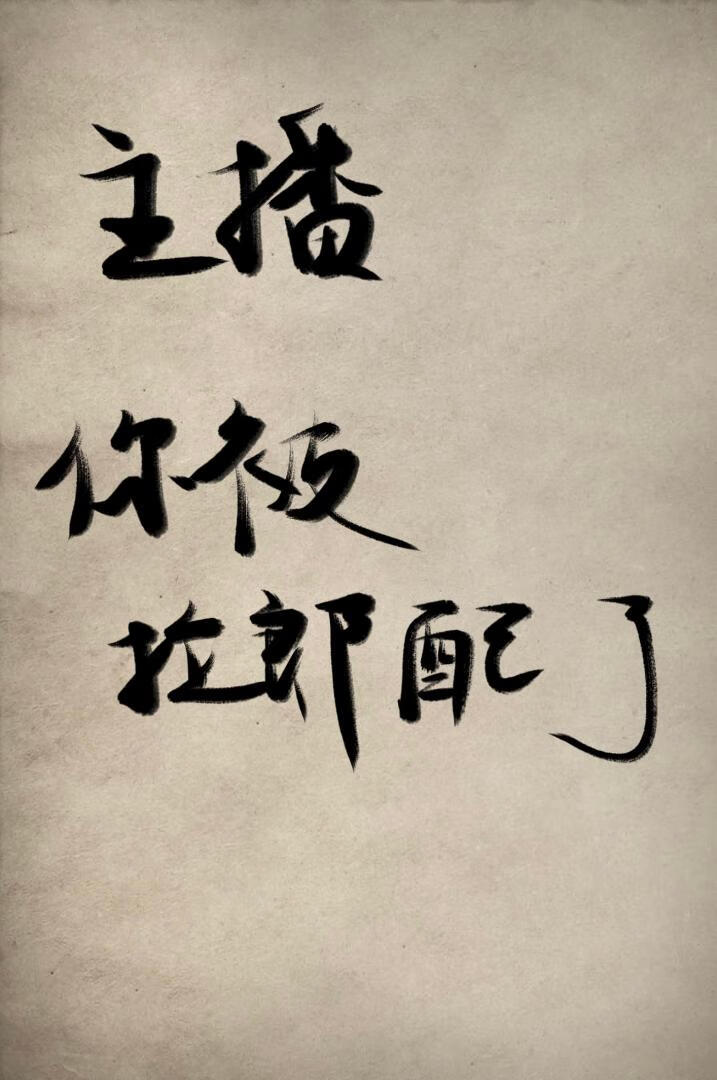 主播
你被
拉郎配了